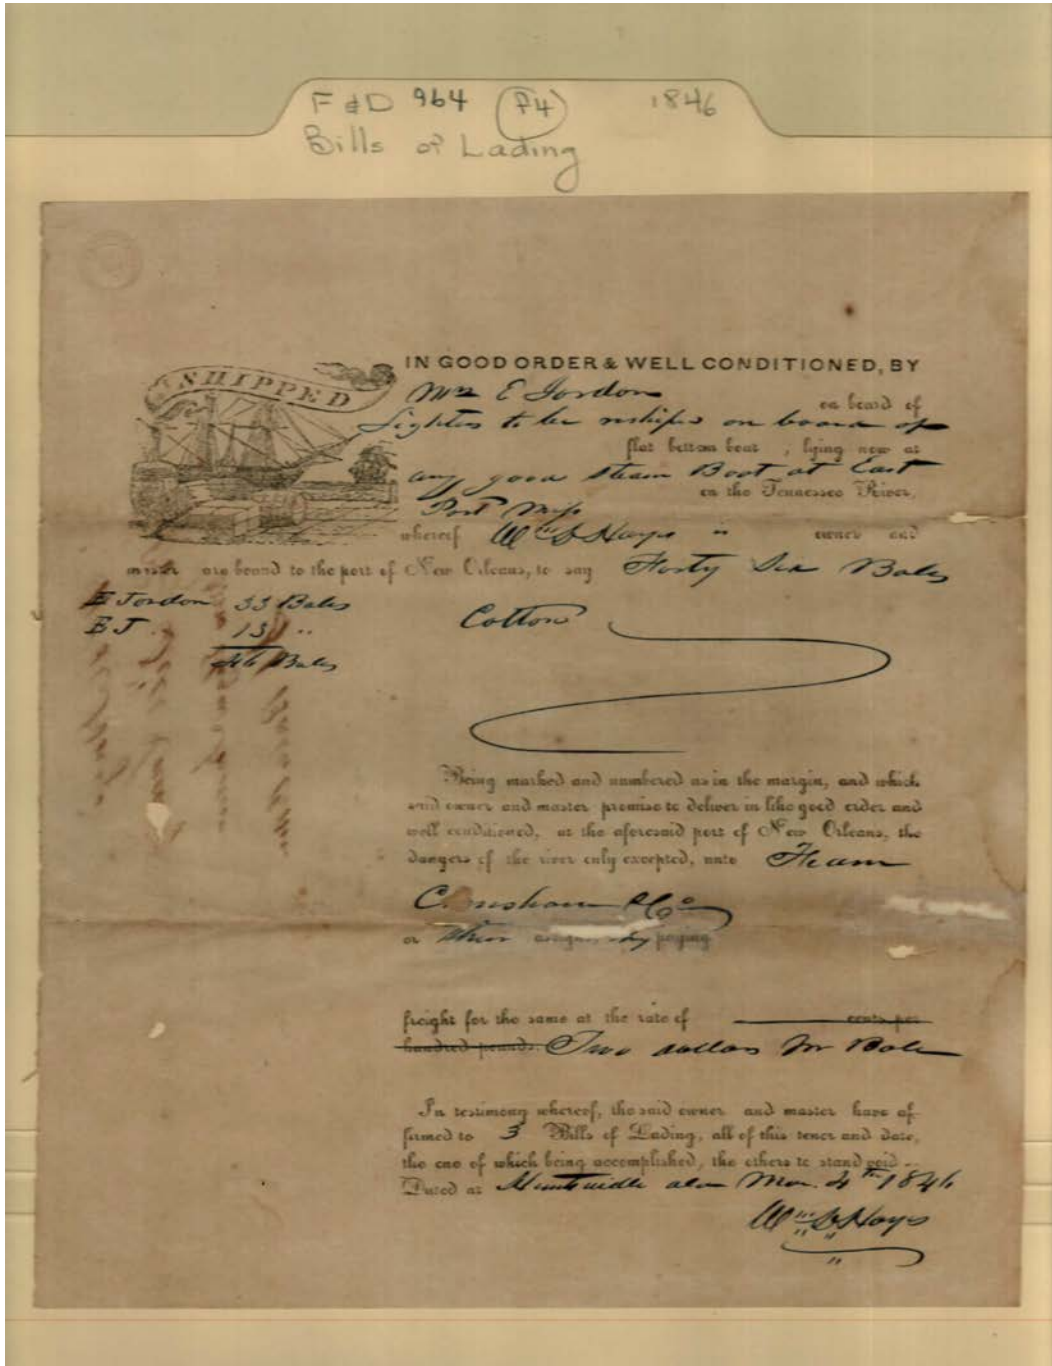 F & D 964 (F4) 1846
Bills of Lading
SHIPPED
IN GOOD ORDER & WELL CONDITIONED, BY
Mrs E Jordon on board of
Lighters to be reships on board of
flat bottom boat, lying now at
any good Steam Boat at East
on the Tennessee River,
Port Miss
whereof Wm D Hays is owner and
master are bound to the port of New Orleans, to say Forty Six Bales
E Jordon 33 Bales
E J 13 "
46 Bales
Cotton
Being marked and numbered as in the margin, and which
said owner and master promise to deliver in like good order and
well conditioned, at the aforesaid port of New Orleans, the
dangers of the river only excepted, unto
& Co
or their assigns, paying
freight for the same at the rate of cents per
hundred pounds. Two dollars pr Bale
In testimony whereof, the said owner and master have af-
firmed to 3 Bills of Lading, all of this tenor and date,
the one of which being accomplished, the others to stand void.
Dated at Huntsville ala Mar. 4th 1846
Wm D Hays